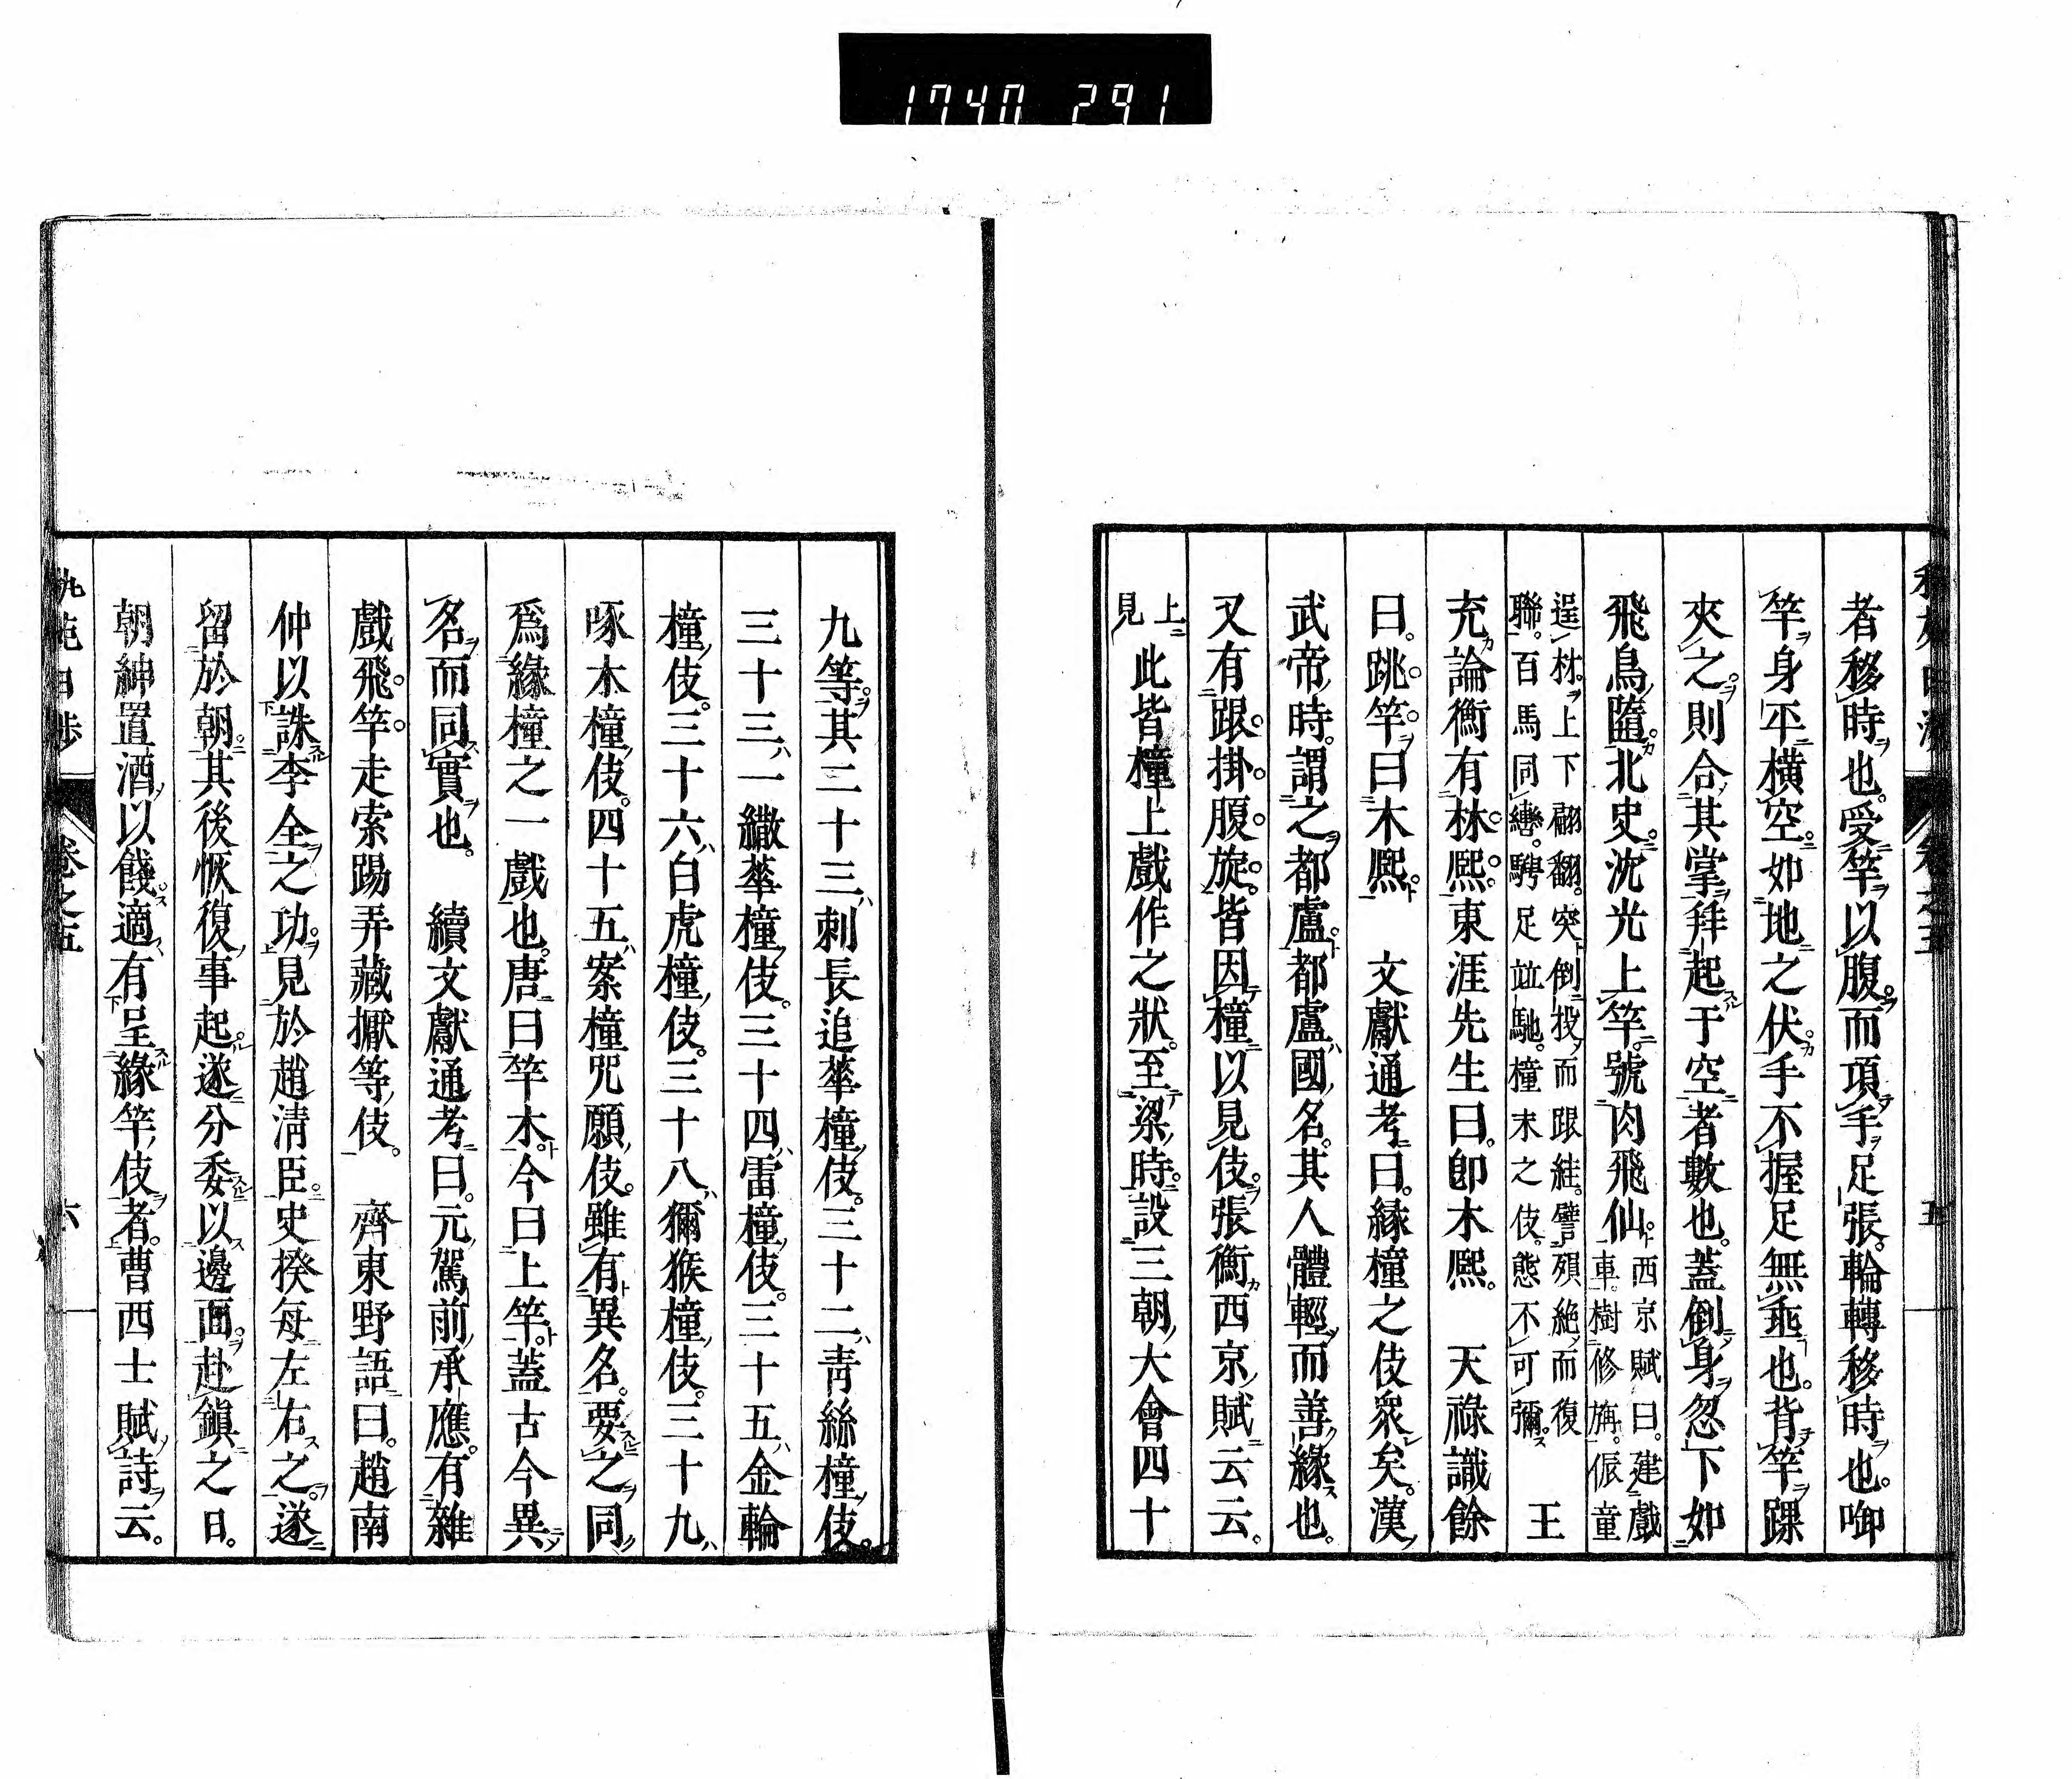 1740 291
者移時也。受竿以腹。而項手足張。輪轉移時也。啣
竿身平横空。如地之伏。手不握足無垂也。背竿踝
夾之。則合其掌拜起于空者數也。蓋倒身忽下如
飛鳥隨。北史。沈光上竿。號肉飛仙。西京賦曰。建戲
車。樹修旃。侲童
逞材。上下翩翻。突倒投而跟絓。譬殞絶而復
聯。百馬同轡。騁足並馳。橦末之伎。態不可彌。
王
充論衡有林熙。東涯先生曰。卽木熙。 天祿識餘
曰。跳竿。曰木熙。 文獻通考曰。縁橦之伎衆矣。漢
武帝時。謂之都盧。都盧國名。其人體輕而善縁也。
又有跟掛腹旋。皆因橦以見伎。張衡西京賦云云。
上
見
此皆橦上戲作之狀。至梁時。設三朝大會四十
卷之五
五
九等。其二十三刺長追華橦伎。三十二青絲橦伎。
三十三一繖華橦伎。三十四雷橦伎。三十五金輪
橦伎。三十六白虎橦伎。三十八獼猴橦伎。三十九
啄木橦伎。四十五案橦咒願伎。雖有異名。要之同
爲縁橦之一戲也。唐曰竿木。今曰上竿。蓋古今異
名而同實也。 續文獻通考曰。元駕前承應。有雜
戲飛竿走索踢弄藏擫等伎。 齊東野語曰。趙南
仲以誅李全之功。見於趙淸臣。史揆每左右之。遂
留於朝。其後恢復事起。遂分委以邊面。赴鎭之日。
朝紳置酒以餞。適有呈緣竿伎者。曹西士賦詩云。
卷之五
六